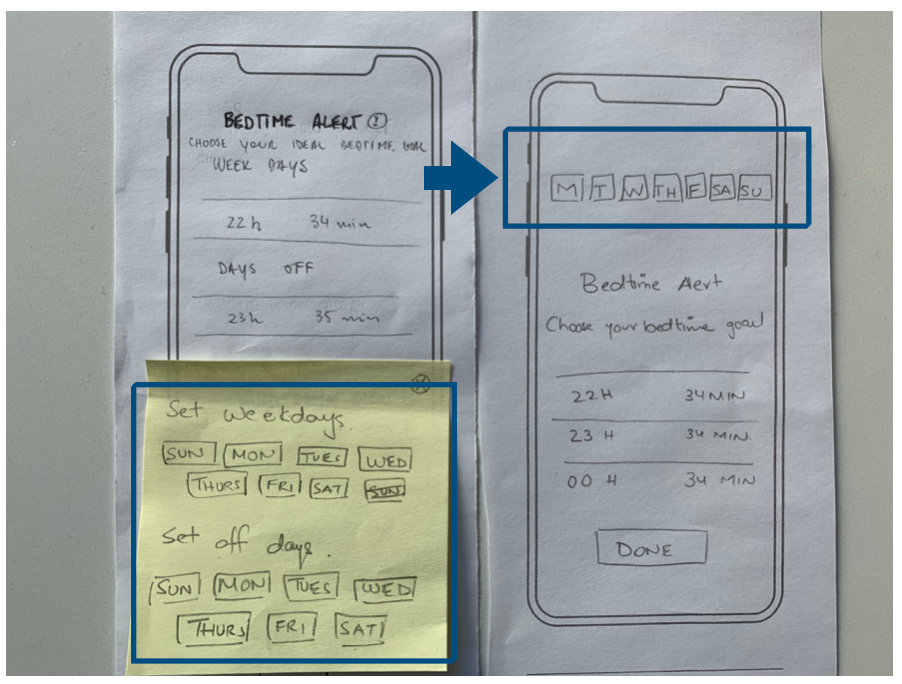 BEDTIME ALERT
CHOOSE YOUR IDEAL BEDTIME. GOAL
WEEK DAYS
22 h 34 min
DAYS OFF
23h 35 min
Set weekdays.
SUN MON TUES WED
THURS FRI SAT SUN
Set off days.
SUN MON TUES WED
THURS FRI SAT
M T W TH F SA SU
Bedtime Alert
Choose your bedtime goal
22 H 34 MIN
23 H 34 MIN
00 H 34 MIN
DONE